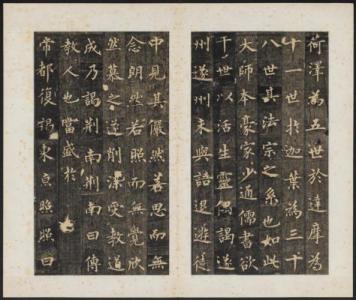 荷澤為五世於達摩為
十一世於迦葉為三十
八世其法宗之系也如此
大師本豪家少通儒書欲
干世以活生靈偶謁遂
州遂州未與語退遊徒
中見其儼然若思而無
念朗然若照而無覺欣
然慕之遂削染受教道
成乃謁荆南荆南曰傳
教人也當盛於
帝都復謁東京照照曰